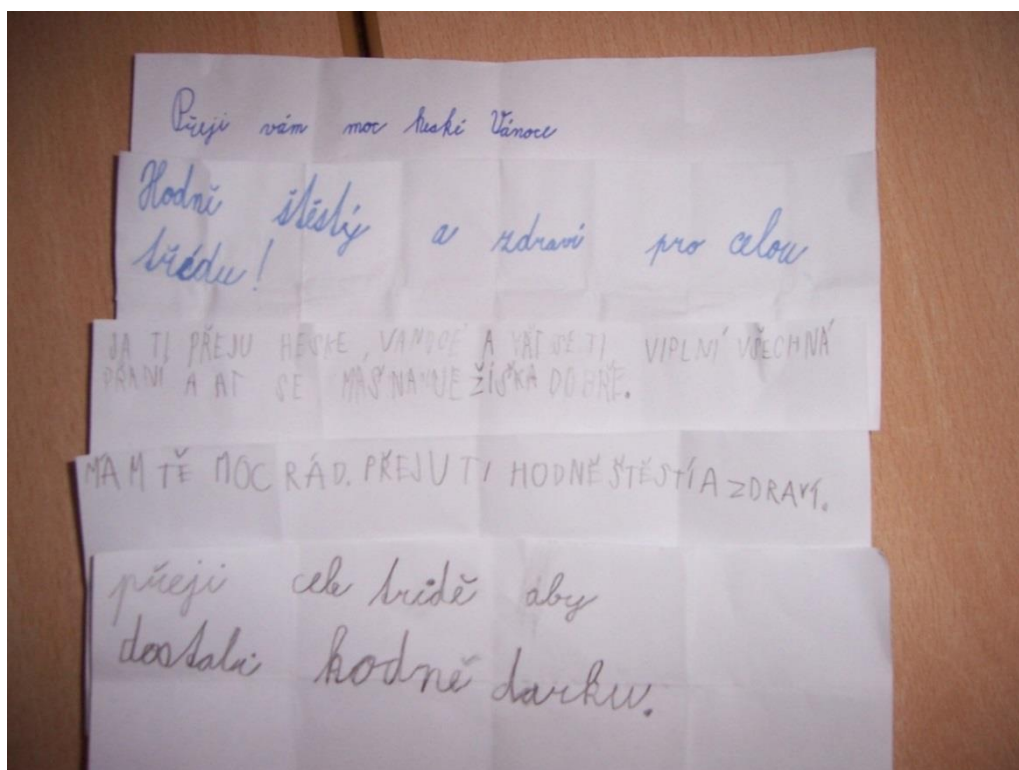 Přeji vám moc heské Vánoce
Hodně štěstý a zdraví pro celou
třédu!
JA TI PŘEJU HESKE, VANOCE A ŤAŤ SE TI VIPLNÍ VŠECHNÁ
PŘANÍ A AT SE MAŠ NA JEŽIŠKA DOBRE.
MAM TĚ MOC RÁD. PŘEJU TI HODNĚ ŠTĚSTÍ A ZDRAVÝ.
přeji cele tridě aby
dostali hodně darku.